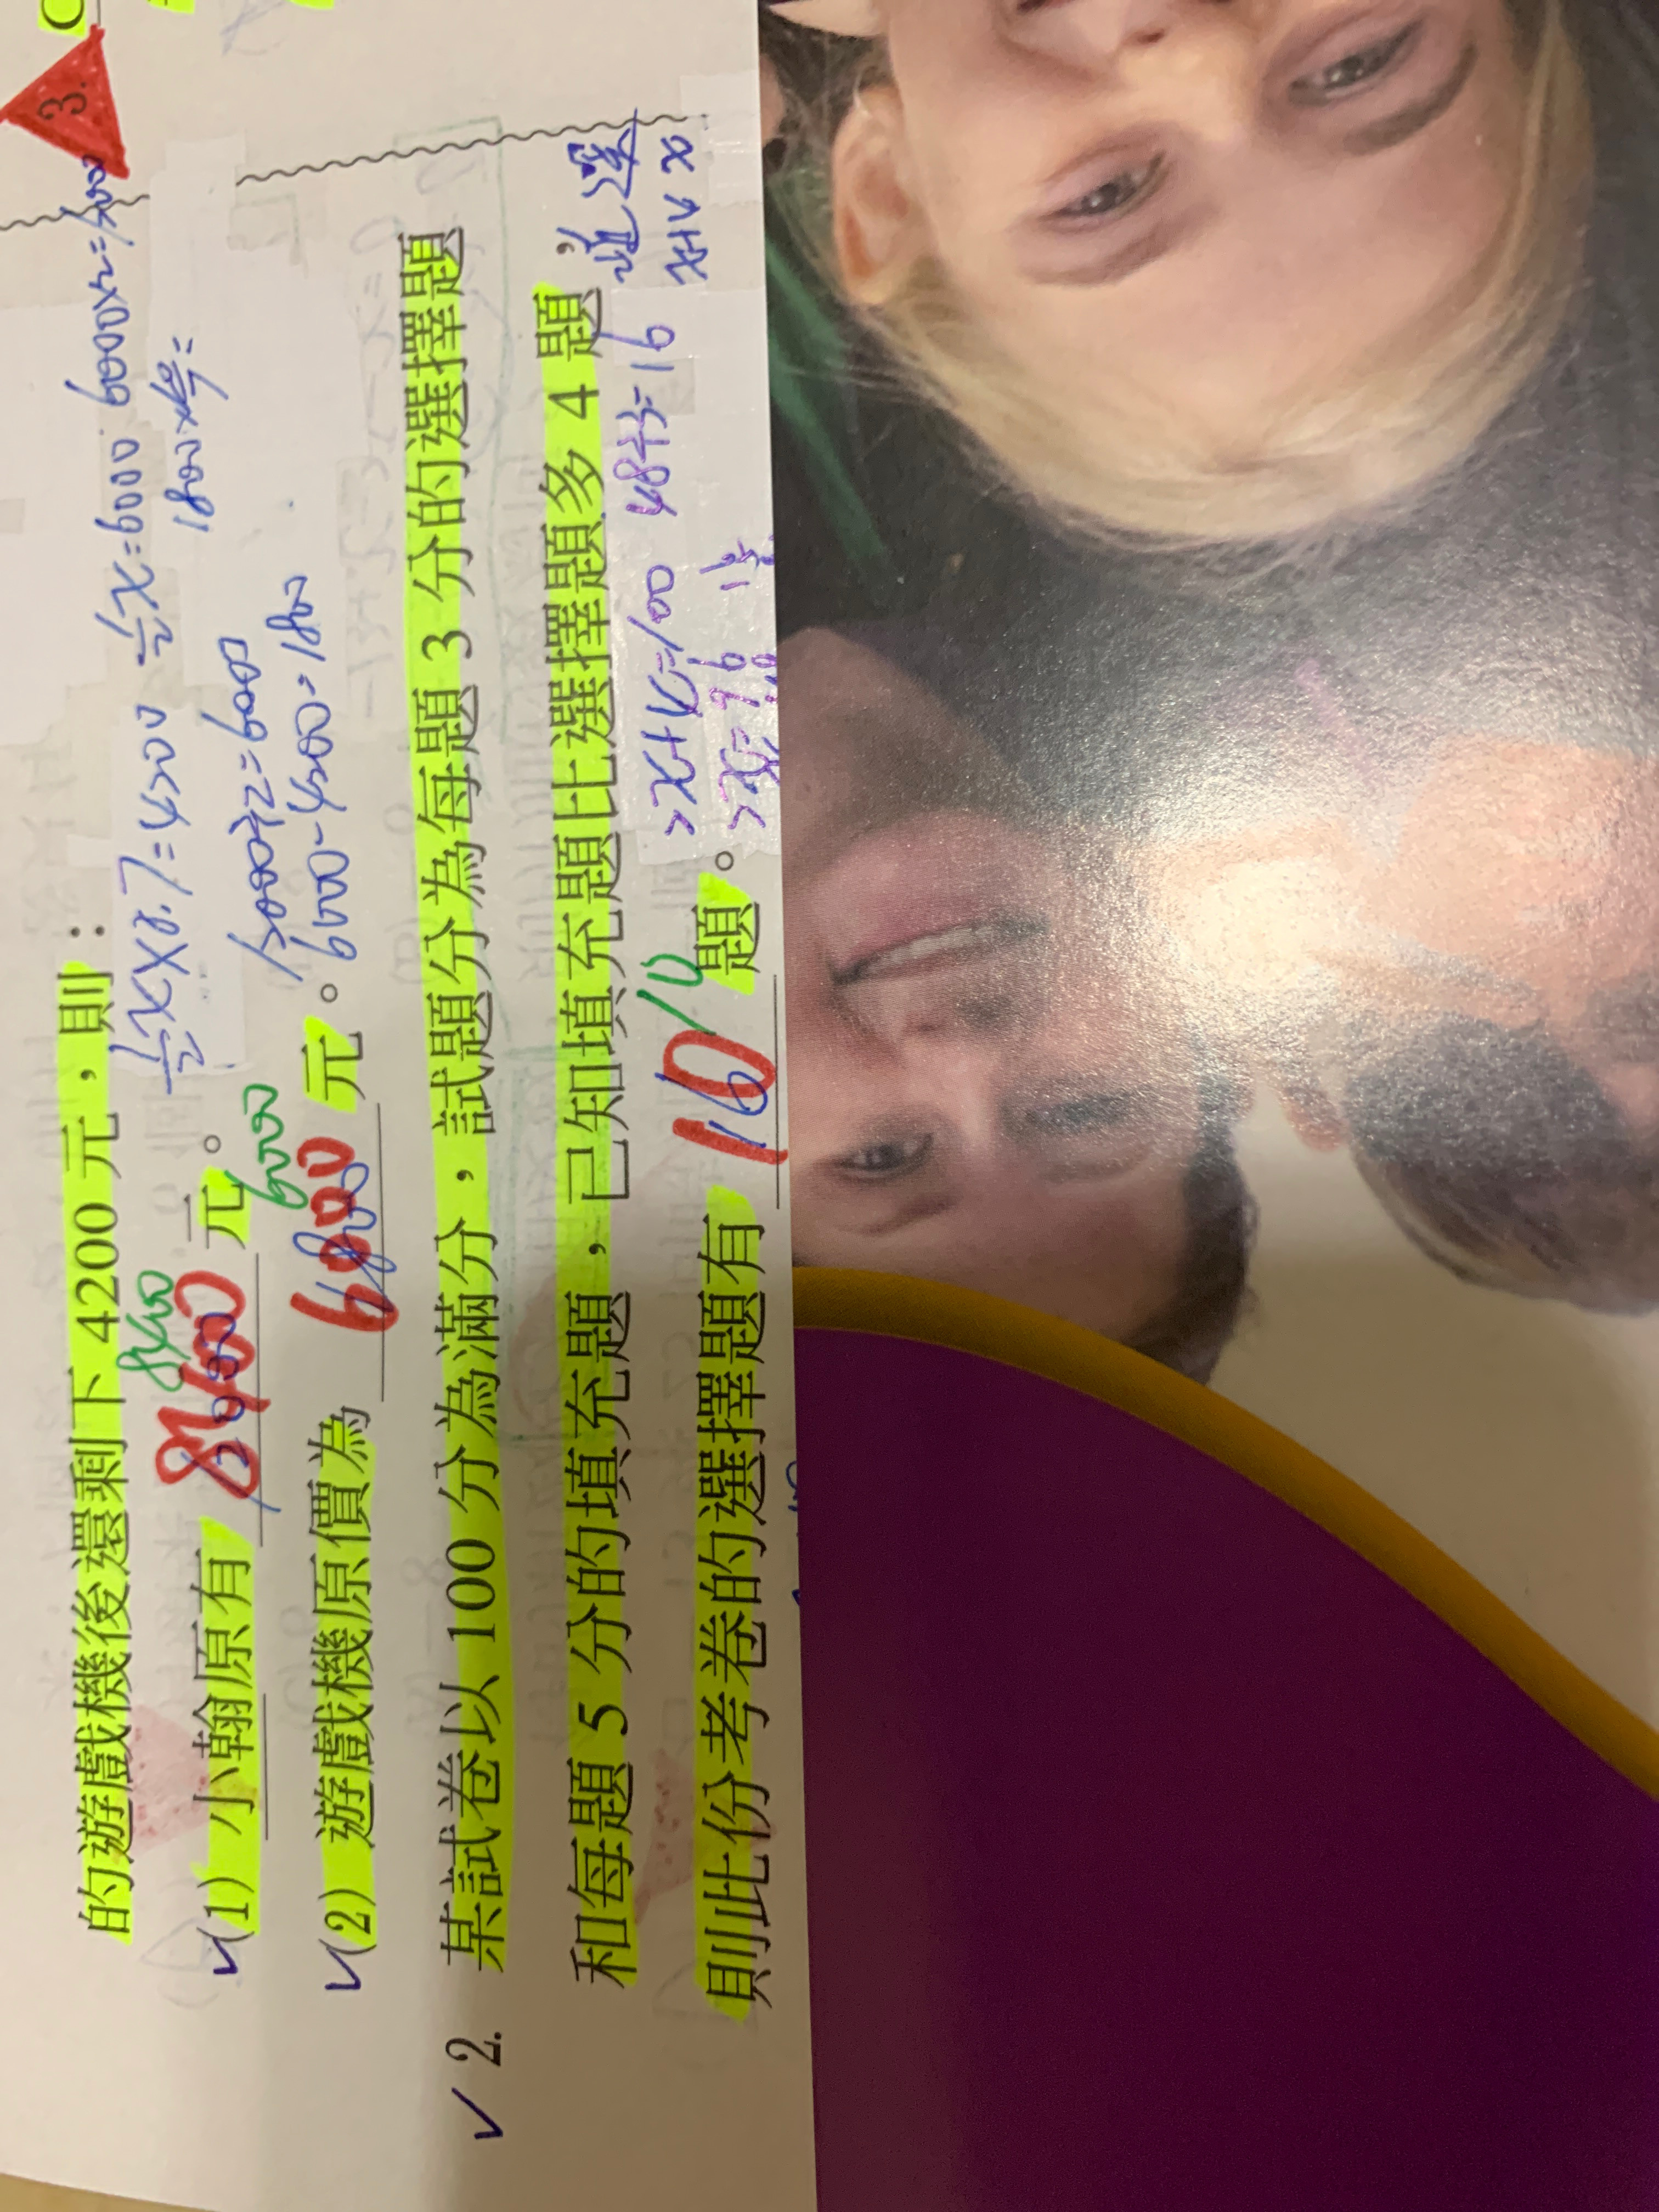 的遊戲機後還剩下 4200 元，則：
½x×0.7=4200 ½x=6000 6000×2=
(1) 小翰原有 8400 元。
8400
12000÷2=6000
1800×
(2) 遊戲機原價為 6000 元。
6000
6000-4200=1800
2. 某試卷以 100 分為滿分，試題分為每題 3 分的選擇題
和每題 5 分的填充題，已知填充題比選擇題多 4 題，
填 選
x+4 x
則此份考卷的選擇題有 10 題。
10
2x+4=100
48÷3=16
3.